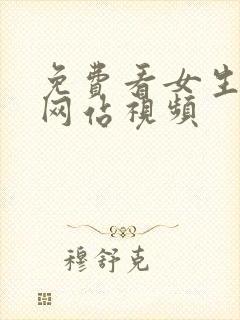 免費看女生
网佔視頻
穆舒克